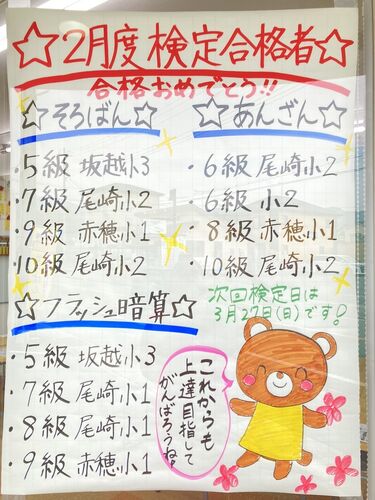 ☆2月度検定合格者☆
合格おめでとう!!
☆そろばん☆
・5級 坂越小3
・7級 尾崎小2
・9級 赤穂小1
・10級 尾崎小2
☆あんざん☆
・6級 尾崎小2
・6級 小2
・8級 赤穂小1
・10級 尾崎小2
☆フラッシュ暗算☆
・5級 坂越小3
・7級 尾崎小1
・8級 尾崎小1
・9級 赤穂小1
次回検定日は
3月27日(日)です!
これからも
上達目指して
がんばろうね!